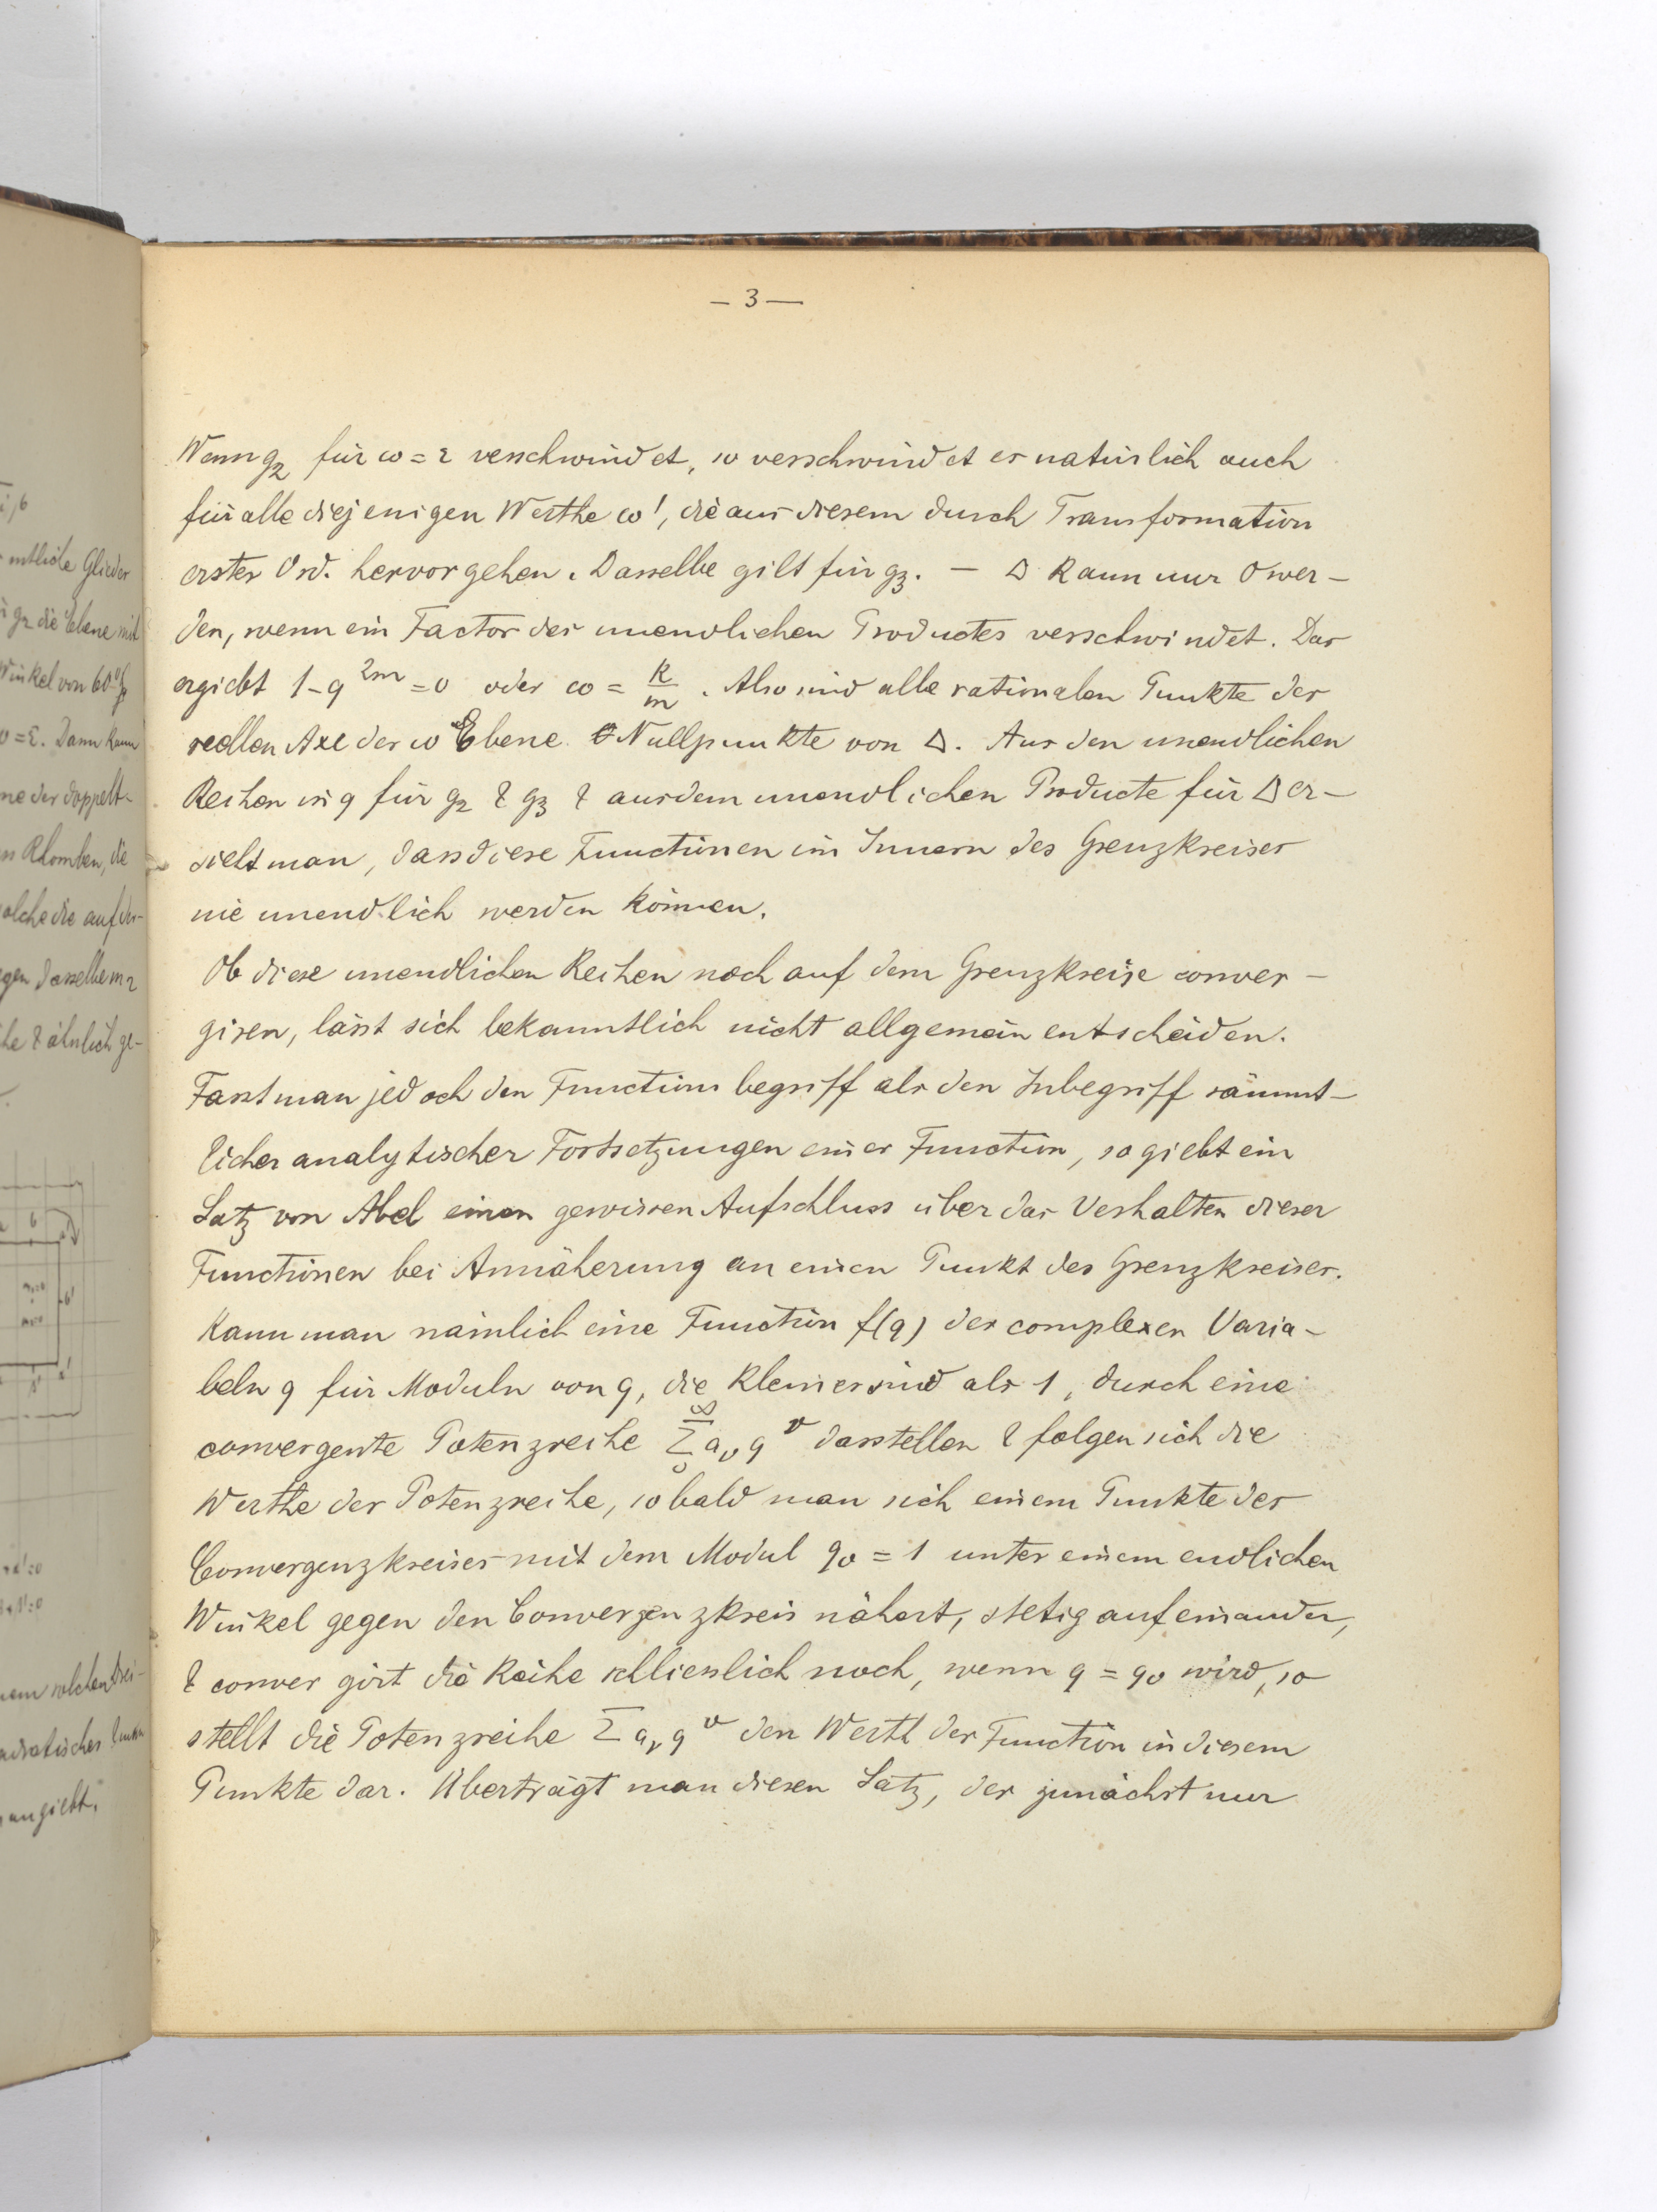 — 3 —
i/6
Wenn g₂ für ω = ε verschwindet, so verschwindet es natürlich auch
für alle diejenigen Werthe ω', die aus diesem durch Transformation
erster Ord. hervorgehen. Dasselbe gilt für g₃. — Δ kann nur 0 wer-
den, wenn ein Factor des unendlichen Productes verschwindet. Das
ergiebt 1-q^{2m} = 0 oder ω = k/m. Also sind alle rationalen Punkte der
reellen Axe der ω Ebene Nullpunkte von Δ. Aus den unendlichen
Reihen in q für g₂ & g₃ & aus dem unendlichen Producte für Δ er-
sieht man, dass diese Functionen im Innern des Grenzkreises
nie unendlich werden können.
Ob diese unendlichen Reihen noch auf dem Grenzkreise conver-
giren, lässt sich bekanntlich nicht allgemein entscheiden.
Fasst man jedoch den Functionsbegriff als den Inbegriff sämmt-
licher analytischer Fortsetzungen einer Function, so giebt ein
Satz von Abel einen gewissen Aufschluss über das Verhalten dieser
Functionen bei Annäherung an einen Punkt des Grenzkreises.
Kann man nämlich eine Function f(q) der complexen Varia-
beln q für Moduln von q, die kleiner sind als 1, durch eine
convergente Potenzreihe Σ₀^∞ a_ν q^ν darstellen & folgen sich die
Werthe der Potenzreihe, sobald man sich einem Punkte des
Convergenzkreises mit dem Modul q₀ = 1 unter einem endlichen
Winkel gegen den Convergenzkreis nähert, stetig aufeinander,
& convergirt die Reihe schliesslich noch, wenn q = q₀ wird, so
stellt die Potenzreihe Σ a_ν q^ν den Werth der Function in diesem
Punkte dar. Überträgt man diesen Satz, der zunächst nur
Glieder
g₂ die Ebene mit
Winkel von 60°
= ε. Dann kann
der doppelt-
Rhomben, die
solche die auf
dasselbe
& ähnlich ge-
solchen Drei-
angiebt.